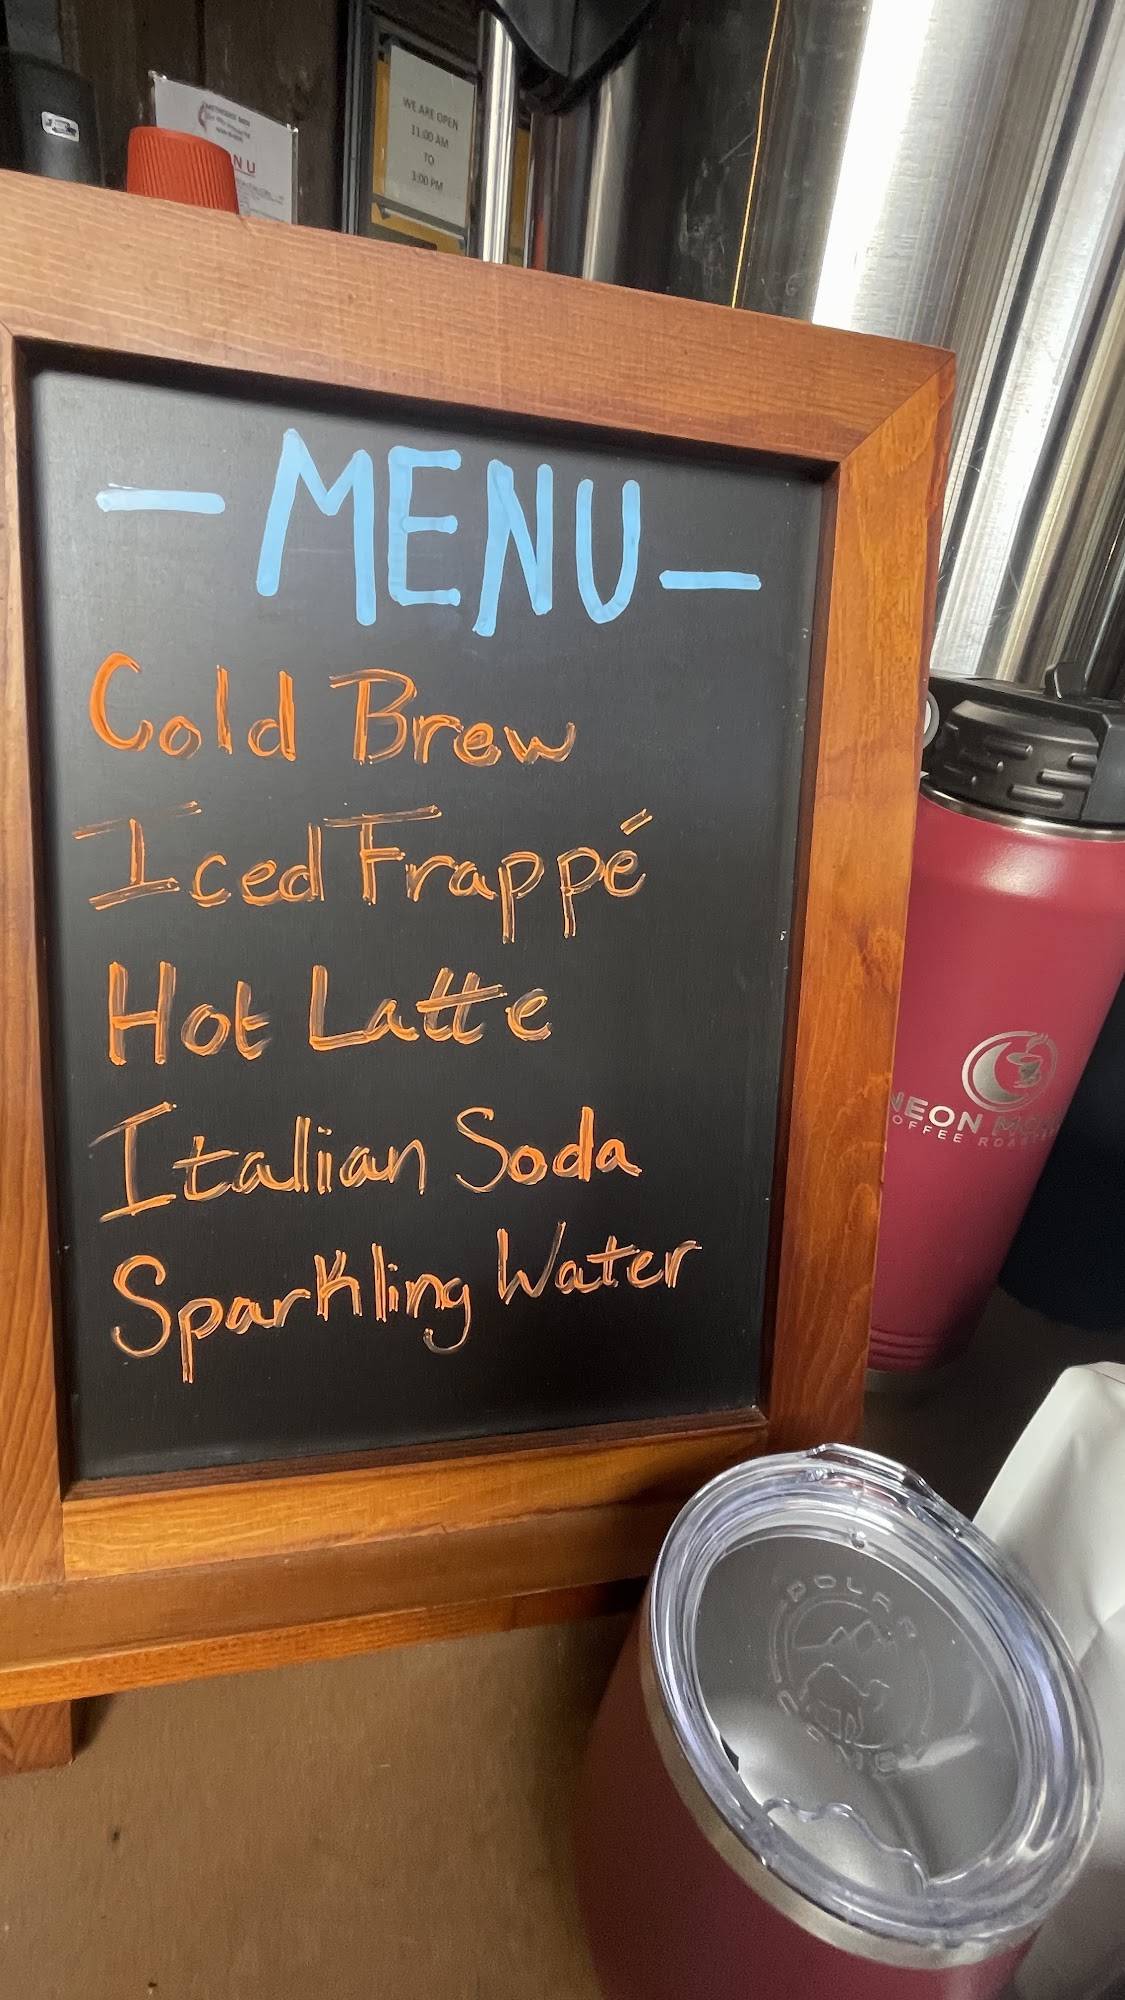 WE ARE OPEN
11:00 AM
TO
3:00 PM
N U
- MENU -
Cold Brew
Iced Frappé
Hot Latte
Italian Soda
Sparkling Water
NEON
COFFEE
POLAR
CAMEL